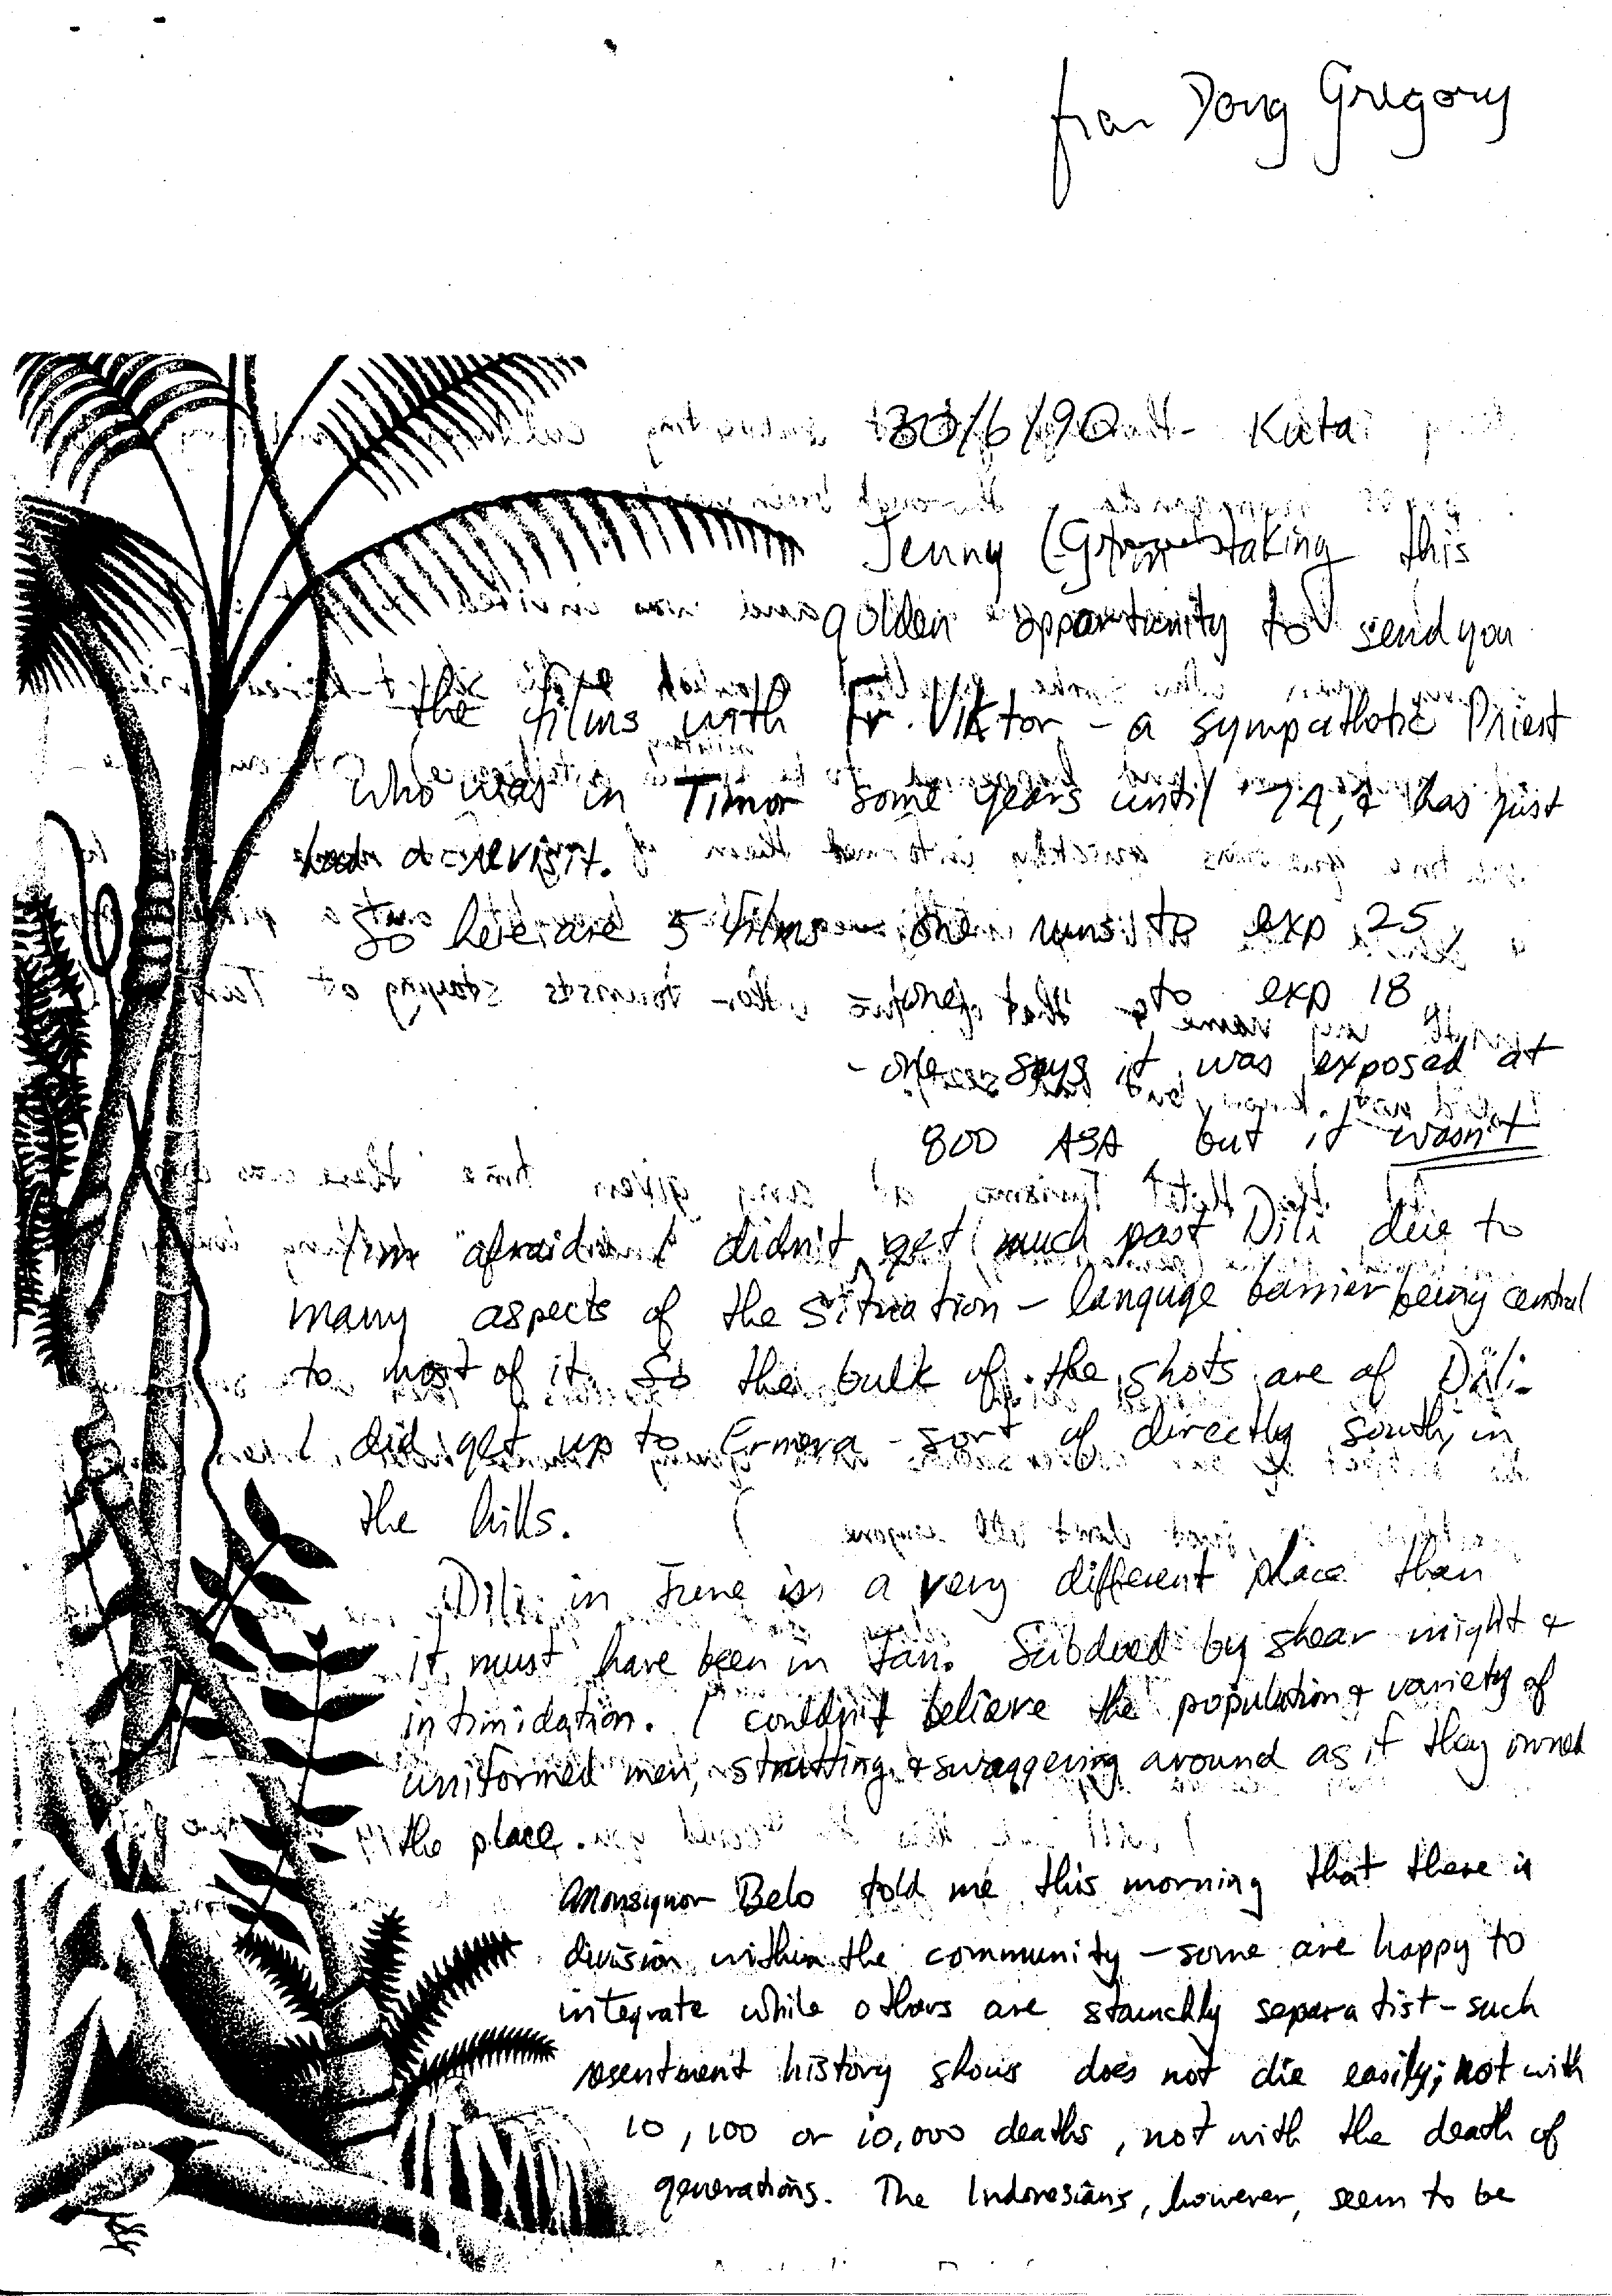 from Doug Gregory
30/6/90 - Kuta
Jenny taking this
golden opportunity to send you
the films with Fr. Viktor - a sympathetic Priest
who was in Timor some years until '74, & has just
had a revisit.
So here are 5 films - one runs to exp 25
one to exp 18
- one says it was exposed at
800 ASA but it wasn't
I'm afraid I didn't get much past Dili due to
many aspects of the situation - languge barrier being central
to most of it. So the bulk of the shots are of Dili -
I did get up to Ermera - sort of directly south, in
the hills.
Dili in June is a very different place than
it must have been in Jan. Subdued by shear might &
intimidation. I couldn't believe the population & variety of
uniformed men, strutting & swaggering around as if they owned
the place.
Monsignor Belo told me this morning that there is
division within the community - some are happy to
integrate while others are staunchly separatist - such
resentment history shows does not die easily; not with
10, 100 or 10,000 deaths, not with the death of
generations. The Indonesians, however, seem to be